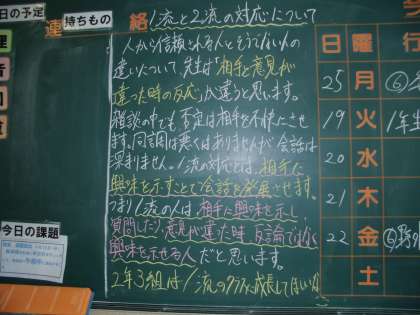 の予定
連
持ちもの
絡
1流と2流の対応について
人から信頼される人とそうでない人の
違いについて、先生は「相手と意見が
違った時の反応」が違うと思います。
雑談の中でも否定は相手を不快にさせ
ます。同調は悪くはありませんが会話は
深まりません。1流の対応とは、相手に
興味を示すことで会話を発展させます。
つまり1流の人は、相手に興味を示し
質問したり、意見が違った時、反論ではなく
興味を示せる人だと思います。
2年3組は1流のクラスに成長してほしいな
日 曜 行
25 月 ⑥
19 火 1年生
20 水
21 木
22 金
土
今日の課題